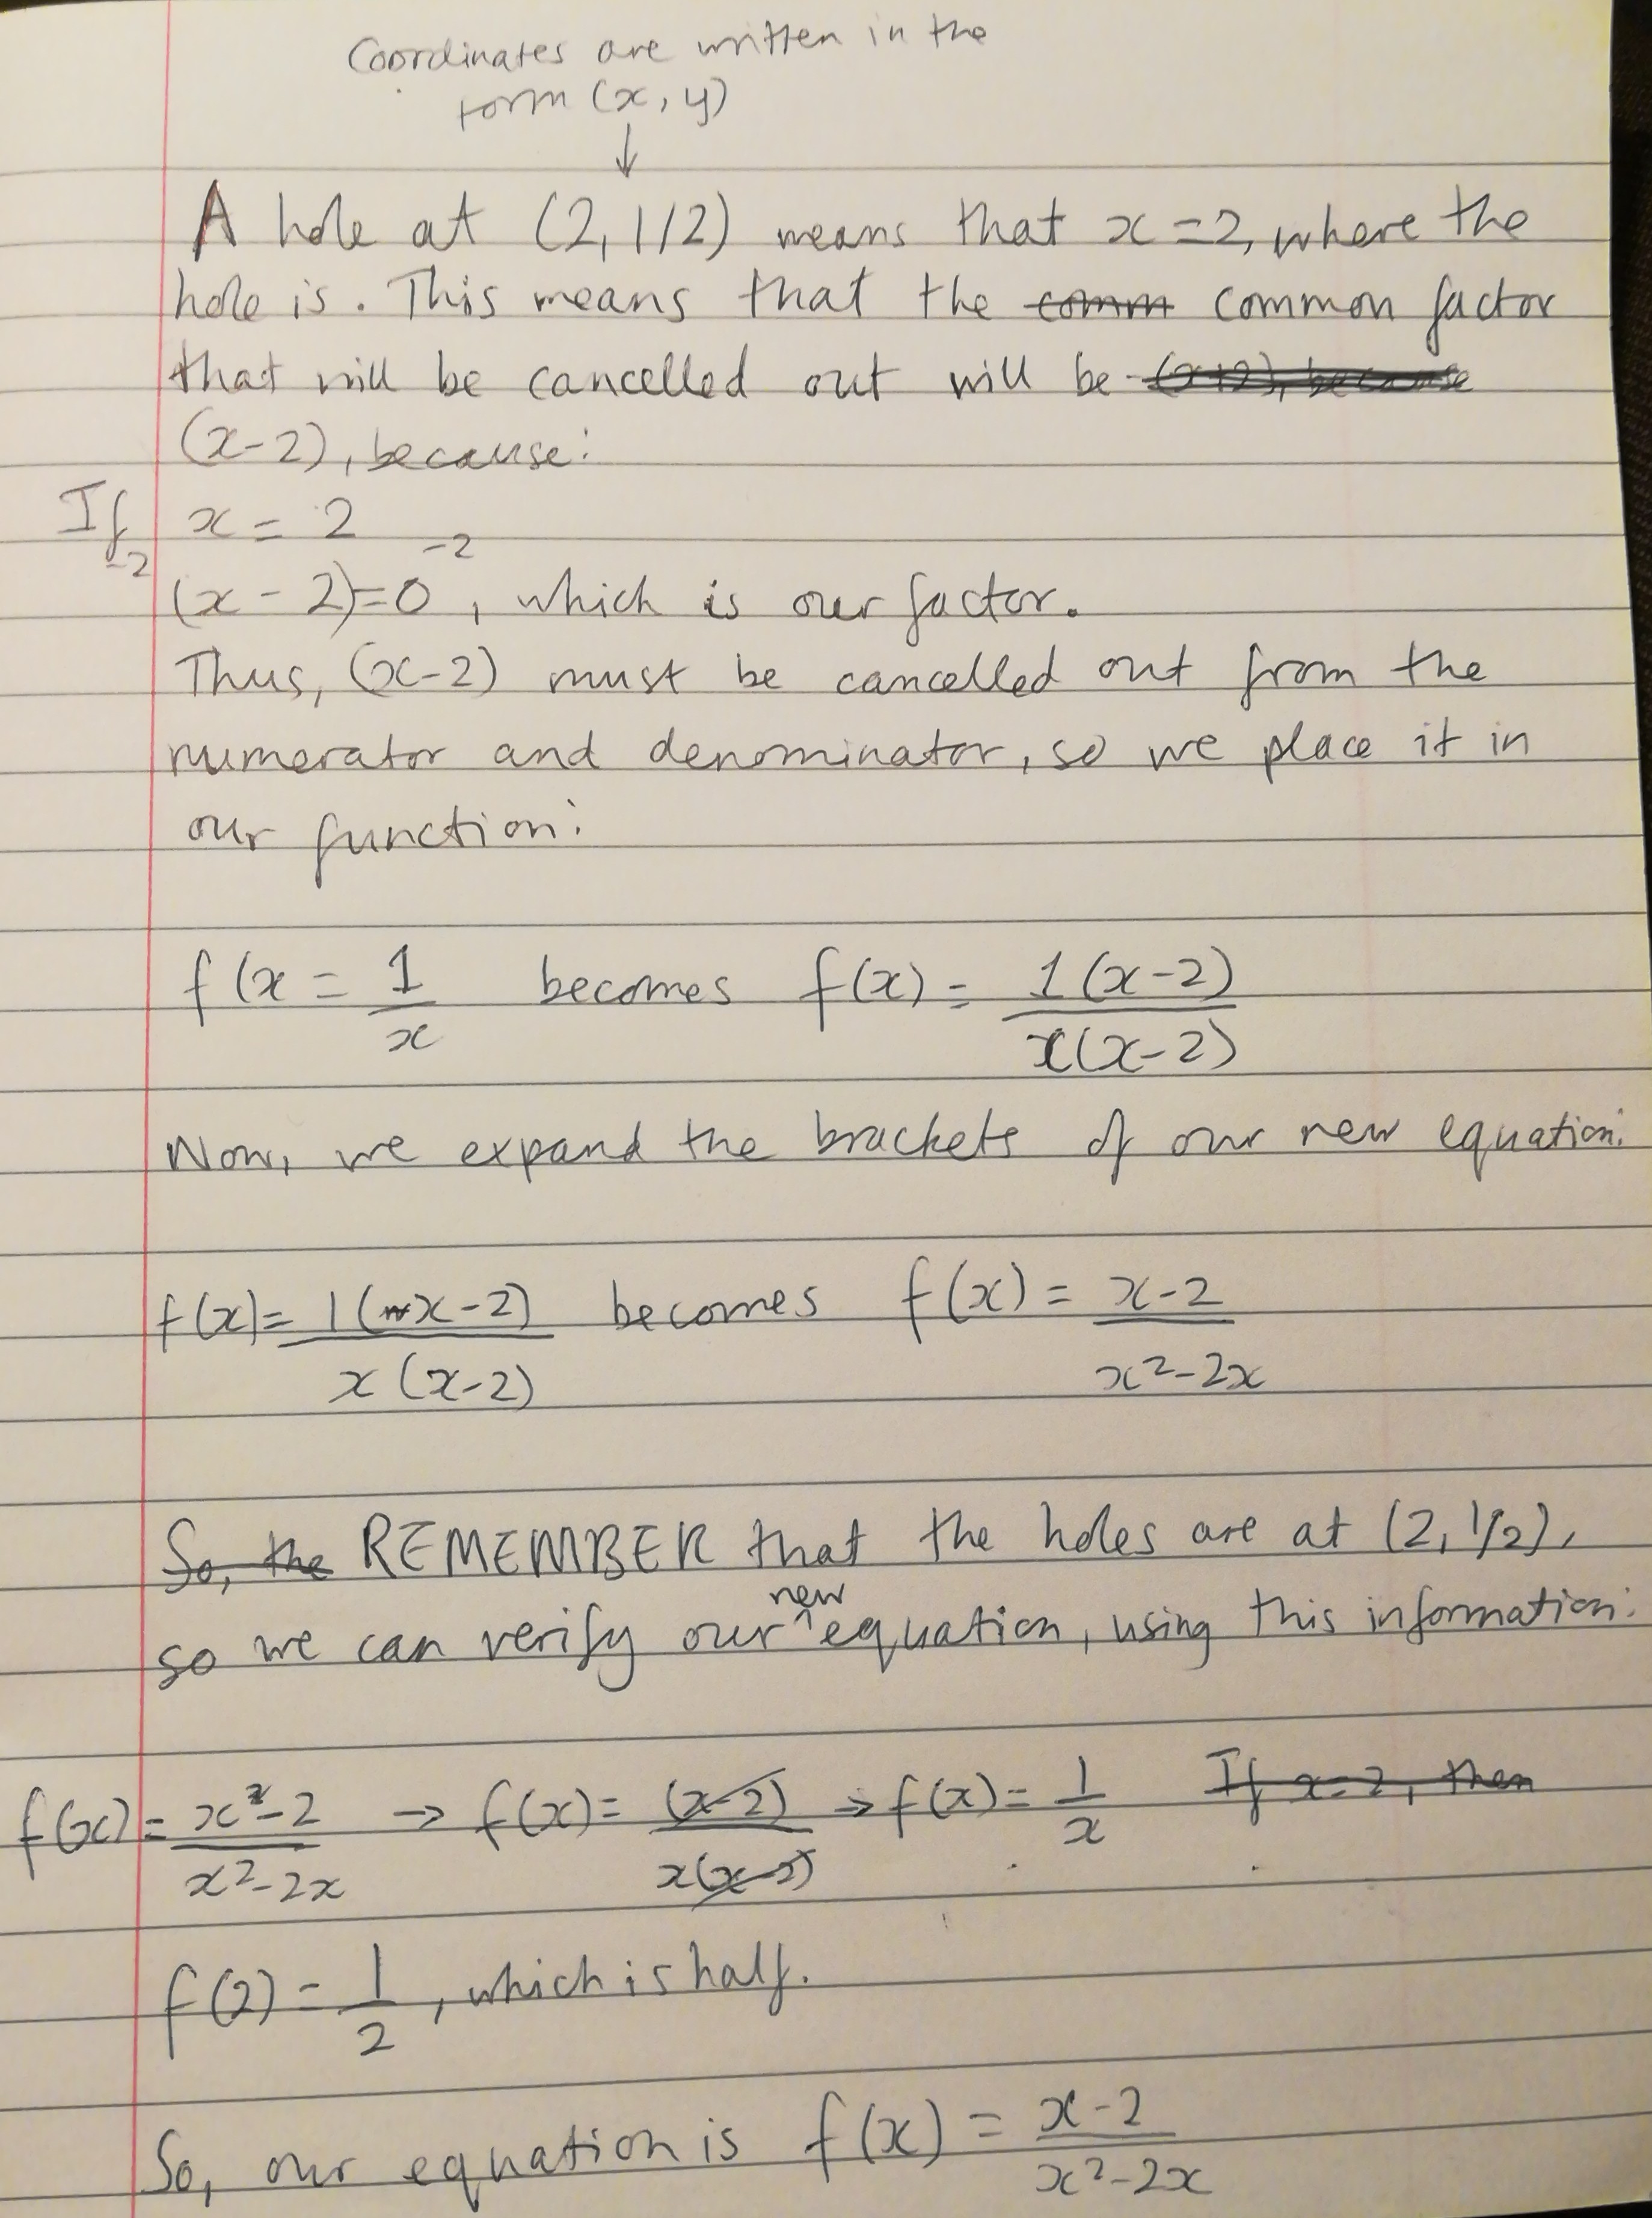 Coordinates are written in the
form (x, y)
↓
A hole at (2, 1/2) means that x = 2, where the
hole is. This means that the comm common factor
that will be cancelled out will be (x+2), because
(x-2), because:
If x = 2
-2 -2
(x - 2)=0, which is our factor.
Thus, (x-2) must be cancelled out from the
numerator and denominator, so we place it in
our function:
f(x = 1/x becomes f(x) = 1(x-2)/x(x-2)
Now, we expand the brackets of our new equation:
f(x)= 1(x-2)/x(x-2) becomes f(x) = x-2/x²-2x
So, the REMEMBER that the holes are at (2, 1/2),
so we can verify our new equation, using this information:
f(x) = x-2/x²-2x → f(x) = (x-2)/x(x-2) → f(x) = 1/x If x=2, then
f(2) = 1/2, which is half.
So, our equation is f(x) = x-2/x²-2x